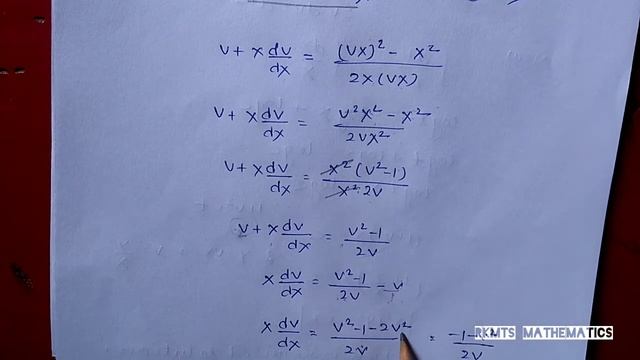 v + x dv/dx = (vx)² - x² / 2x(vx)
v + x dv/dx = v²x² - x² / 2vx²
v + x dv/dx = x²(v²-1) / x² 2v
v + x dv/dx = v²-1 / 2v
x dv/dx = v²-1 / 2v - v
x dv/dx = v²-1-2v² / 2v = -1-v² / 2v
RKMTS MATHEMATICS